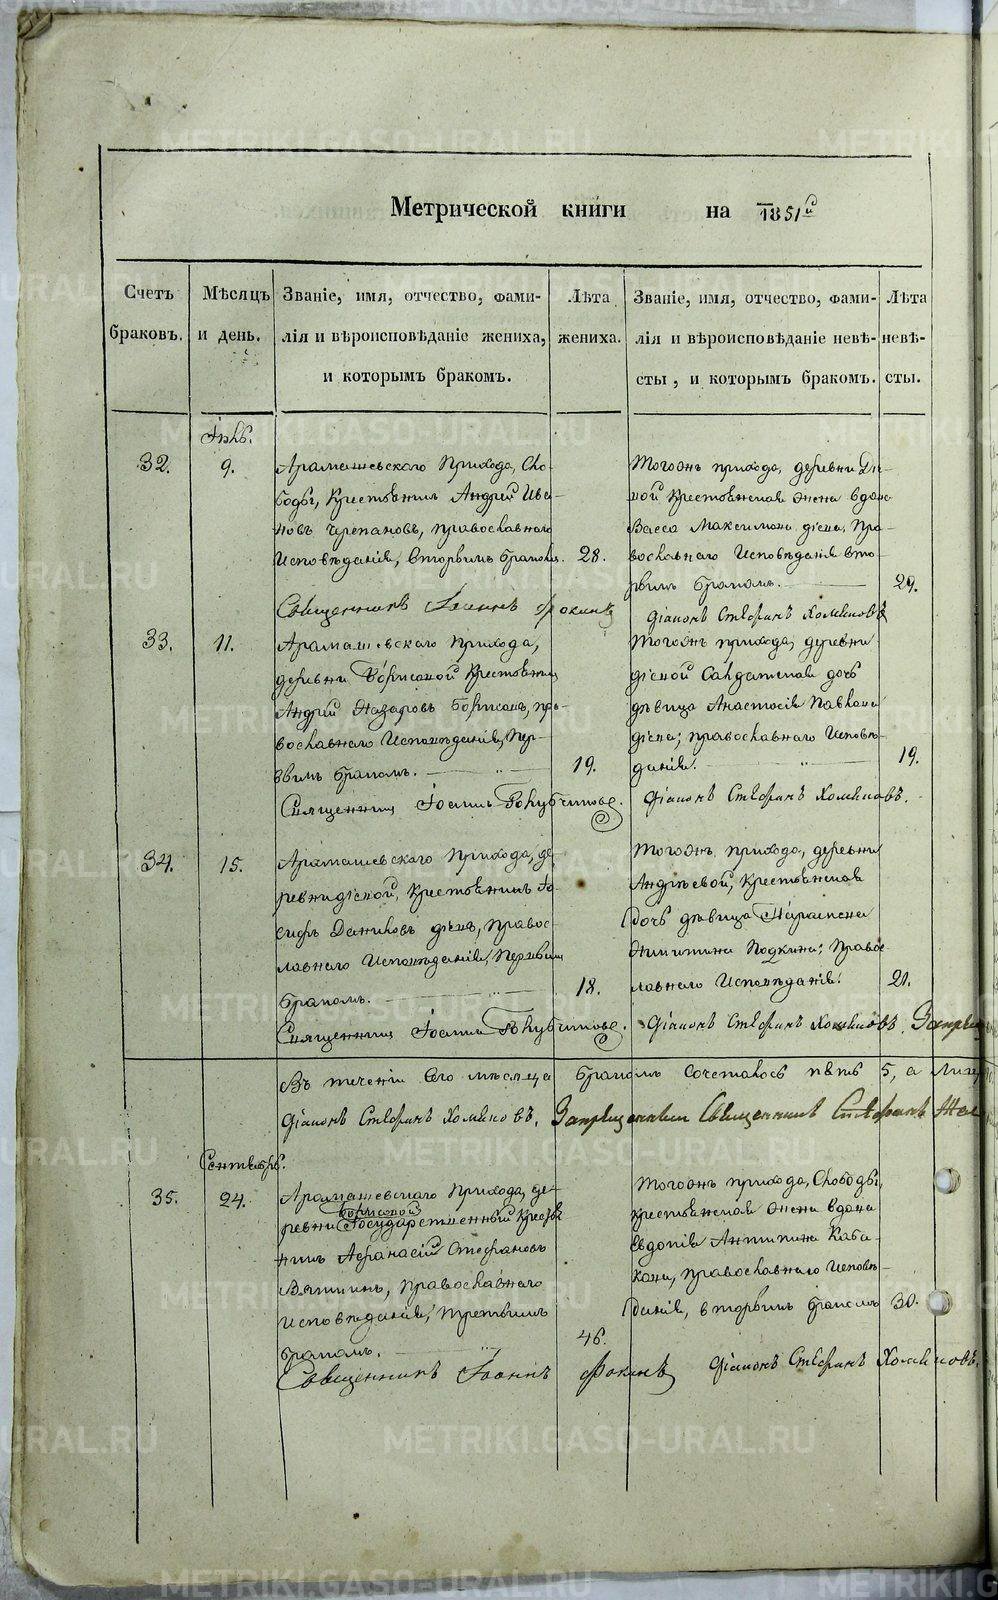 Метрической книги на 1851й
Счетъ браковъ.
Мѣсяцъ и день.
Званіе, имя, отчество, фами-
лія и вѣроисповѣданіе жениха,
и которымъ бракомъ.
Лѣта жениха.
Званіе, имя, отчество, фами-
лія и вѣроисповѣданіе невѣ-
сты, и которымъ бракомъ.
Лѣта невѣ-
сты.
32.
9.
Арамашевскаго Прихода, Сло-
боды, Крестьянинъ Андрей Ива-
новъ Черепановъ, православнаго
Исповѣданія, вторымъ бракомъ.
28.
Тогожъ прихода, деревни
крестьянская жена вдова
Васса Максимова, Пра-
вославнаго Исповѣданія вто-
рымъ бракомъ.
29.
Священникъ Іоаннъ Фокинъ
Діаконъ Стефанъ Хомяковъ
33.
11.
Арамашевскаго Прихода,
деревни Борисовой Крестьянинъ
Андрей Назаровъ Борисовъ, пра-
вославнаго Исповѣданія, Пер-
вымъ бракомъ.
19.
Тогожъ прихода, деревни
Солдатская дочь
дѣвица Анастасія Павлова
православнаго Исповѣ-
данія.
19.
Священникъ
Діаконъ Стефанъ Хомяковъ.
34.
15.
Арамашевскаго Прихода, де-
Крестьянинъ Іо-
сифъ Даниловъ Правос-
лавнаго Исповѣданія, Первымъ
бракомъ.
18.
Тогожъ прихода, деревни
Андреевой, Крестьянская
дочь дѣвица Параскева
Никитина Подкина; Правос-
лавнаго Исповѣданія.
21.
Священникъ
Діаконъ Стефанъ Хомяковъ.
Въ теченіи сего мѣсяца бракомъ сочеталось пять 5, а лицъ
Діаконъ Стефанъ Хомяковъ. Запрещенный Священникъ Стефанъ
Сентябрь.
35.
24.
Арамашевскаго Прихода, де-
Борисовой
ревни Государственный Кресть
нинъ Афанасій Стефановъ
Вяткинъ, Православнаго
Исповѣданія, Третьимъ
бракомъ.
46.
Тогожъ прихода, Слободы,
крестьянская жена вдова
Евдокія Антипина Каба-
кова, православнаго Исповѣ-
данія, вторымъ бракомъ
30.
Священникъ Іоаннъ Фокинъ Діаконъ Стефанъ Хомяковъ.
METRIKI.GASO-URAL.RU